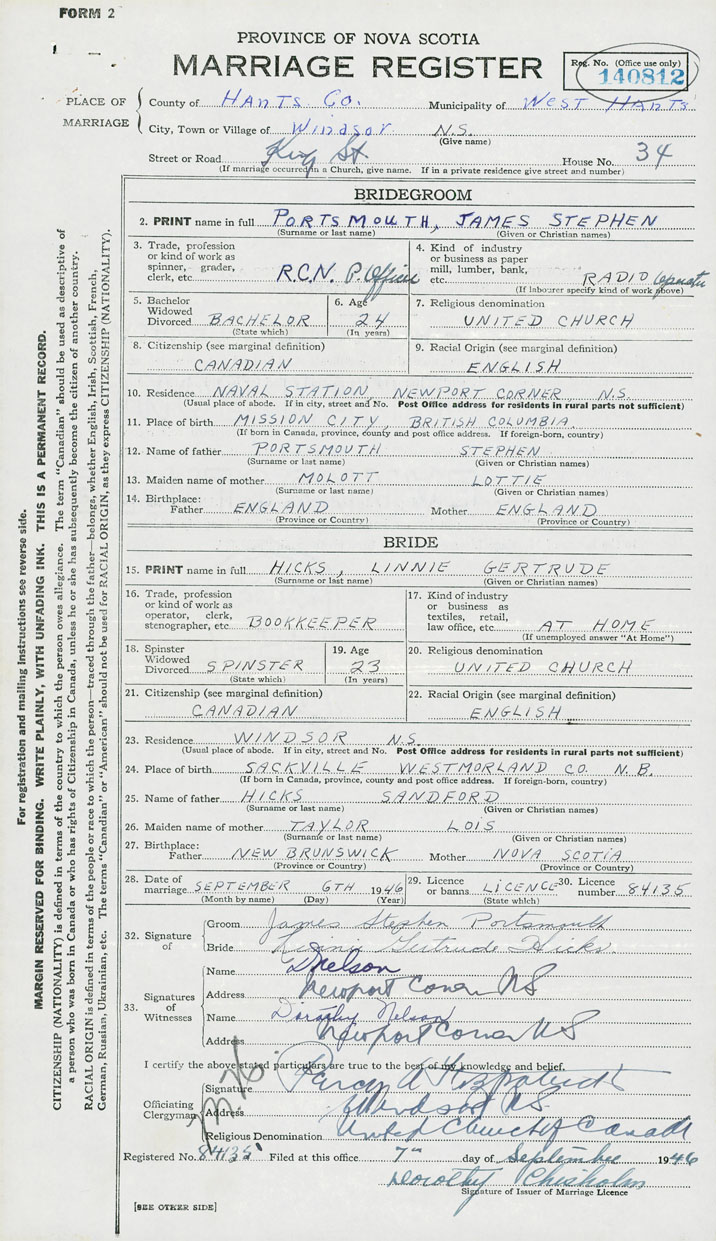 FORM 2
PROVINCE OF NOVA SCOTIA
MARRIAGE REGISTER
Reg. No. (Office use only)
140812
PLACE OF MARRIAGE
County of HANTS CO. Municipality of WEST HANTS
City, Town or Village of WINDSOR N.S.
(Give name)
Street or Road King St House No. 34
(If marriage occurred in a Church, give name. If in a private residence give street and number)
BRIDEGROOM
2. PRINT name in full PORTSMOUTH, JAMES STEPHEN
(Surname or last name) (Given or Christian names)
3. Trade, profession or kind of work as spinner, grader, clerk, etc. R.C.N. P. Officer
4. Kind of industry or business as paper mill, lumber, bank, etc. RADIO Operator
(If labourer specify kind of work above)
5. Bachelor Widowed Divorced BACHELOR
(State which)
6. Age 24
(In years)
7. Religious denomination
UNITED CHURCH
8. Citizenship (see marginal definition)
CANADIAN
9. Racial Origin (see marginal definition)
ENGLISH
10. Residence NAVAL STATION NEWPORT CORNER, N.S.
(Usual place of abode. If in city, street and No. Post Office address for residents in rural parts not sufficient)
11. Place of birth MISSION CITY, BRITISH COLUMBIA
(If born in Canada, province, county and post office address. If foreign-born, country)
12. Name of father PORTSMOUTH STEPHEN
(Surname or last name) (Given or Christian names)
13. Maiden name of mother MOLOTT LOTTIE
(Surname or last name) (Given or Christian names)
14. Birthplace:
Father ENGLAND Mother ENGLAND
(Province or Country) (Province or Country)
BRIDE
15. PRINT name in full HICKS, LINNIE GERTRUDE
(Surname or last name) (Given or Christian names)
16. Trade, profession or kind of work as operator, clerk, stenographer, etc. BOOKKEEPER
17. Kind of industry or business as textiles, retail, law office, etc. AT HOME
(If unemployed answer "At Home")
18. Spinster Widowed Divorced SPINSTER
(State which)
19. Age 23
(In years)
20. Religious denomination
UNITED CHURCH
21. Citizenship (see marginal definition)
CANADIAN
22. Racial Origin (see marginal definition)
ENGLISH
23. Residence WINDSOR N.S.
(Usual place of abode. If in city, street and No. Post Office address for residents in rural parts not sufficient)
24. Place of birth SACKVILLE WESTMORLAND CO. N.B.
(If born in Canada, province, county and post office address. If foreign-born, country)
25. Name of father HICKS SANDFORD
(Surname or last name) (Given or Christian names)
26. Maiden name of mother TAYLOR LOIS
(Surname or last name) (Given or Christian names)
27. Birthplace:
Father NEW BRUNSWICK Mother NOVA SCOTIA
(Province or Country) (Province or Country)
28. Date of marriage SEPTEMBER 6TH 1946
(Month by name) (Day) (Year)
29. Licence or banns LICENCE
(State which)
30. Licence number 84135
32. Signature of
Groom James Stephen Portsmouth
Bride Linnie Gertrude Hicks
33. Signatures of Witnesses
Name D Nelson
Address Newport Corner NS
Name Dorothy Nelson
Address Newport Corner NS
I certify the above stated particulars are true to the best of my knowledge and belief.
Officiating Clergyman
Signature Percy A Fitzpatrick
Address Windsor NS
Religious Denomination United Church of Canada
Registered No. 84135 Filed at this office 7th day of September 1946
Dorothy Chisholm
Signature of Issuer of Marriage Licence
[SEE OTHER SIDE]
For registration and mailing instructions see reverse side.
MARGIN RESERVED FOR BINDING. WRITE PLAINLY, WITH UNFADING INK. THIS IS A PERMANENT RECORD.
CITIZENSHIP (NATIONALITY) is defined in terms of the country to which the person owes allegiance. The term "Canadian" should be used as descriptive of
a person who was born in Canada or who has rights of Citizenship in Canada, unless he or she has subsequently become the citizen of another country.
RACIAL ORIGIN is defined in terms of the people or race to which the person—traced through the father—belongs, whether English, Irish, Scottish, French,
German, Russian, Ukrainian, etc. The terms "Canadian" or "American" should not be used for RACIAL ORIGIN, as they express CITIZENSHIP (NATIONALITY).